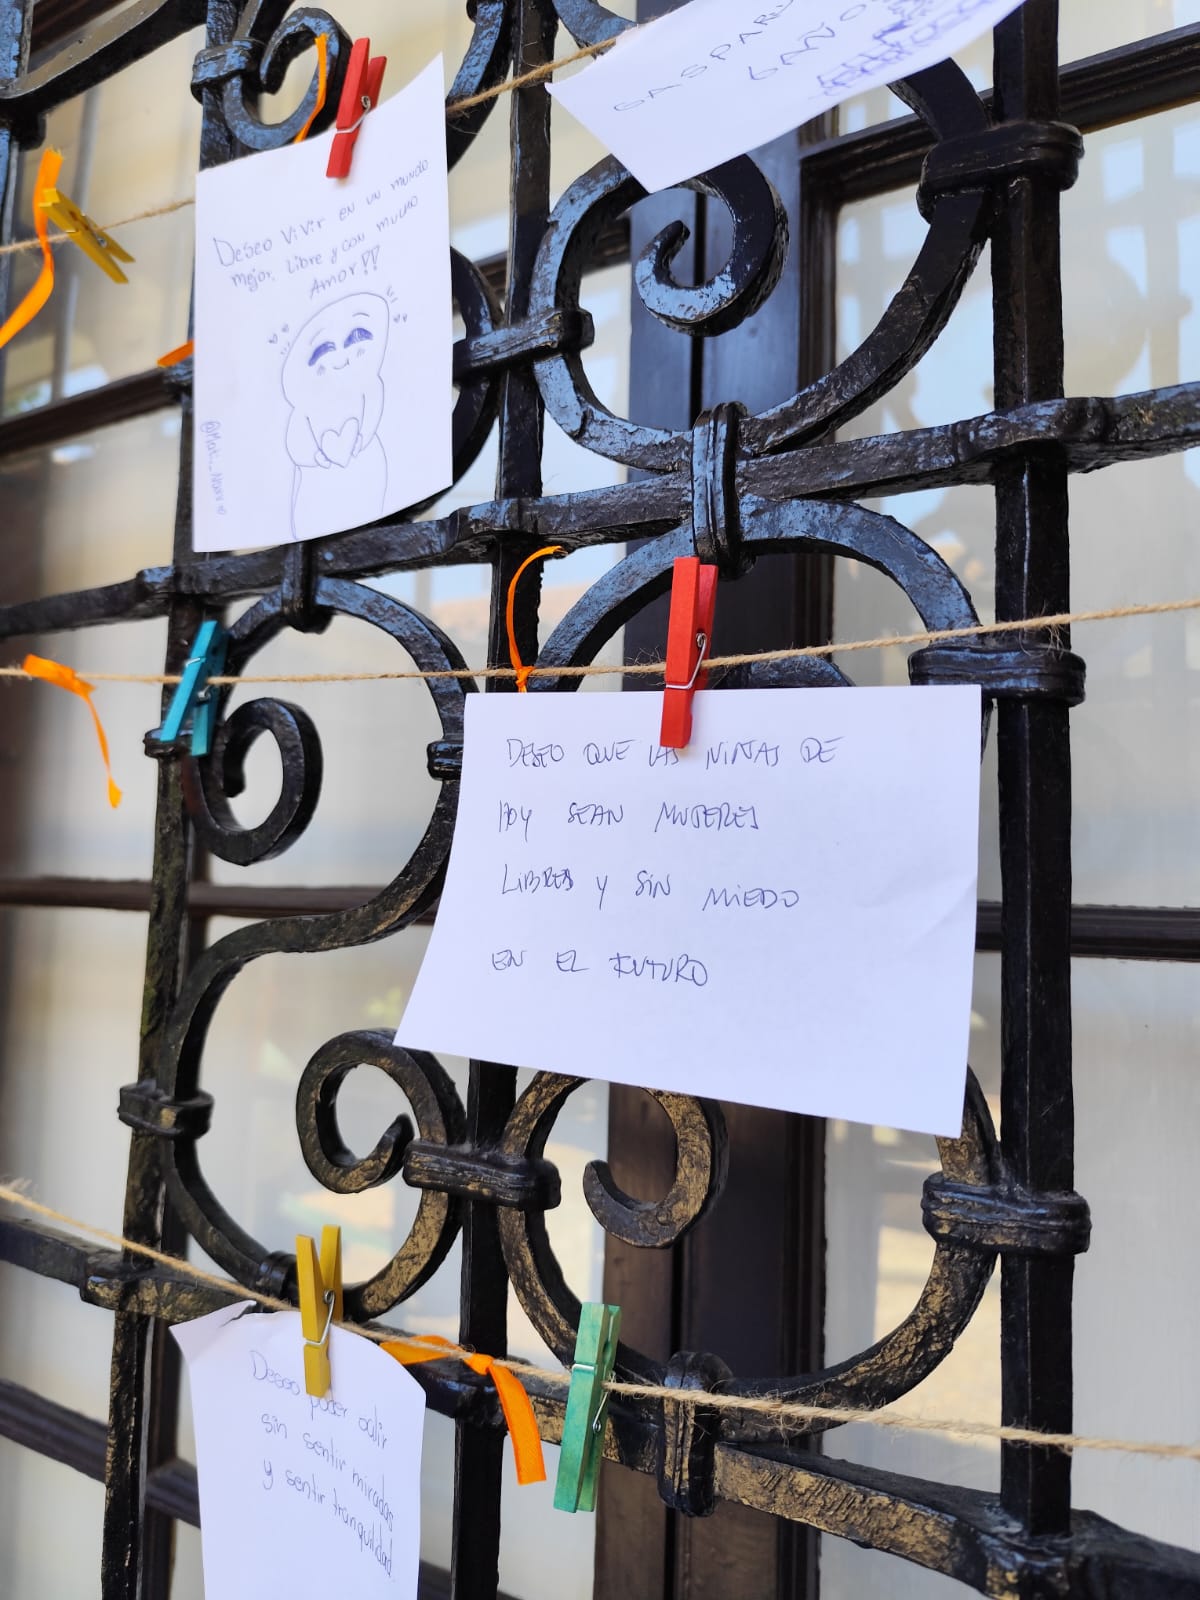 GASPAR
Deseo vivir en un mundo
mejor, libre y con mucho
Amor!!
DESEO QUE LAS NIÑAS DE
HOY SEAN MUJERES
LIBRES Y SIN MIEDO
EN EL FUTURO
Deseo poder salir
sin sentir miradas
y sentir tranquilidad.